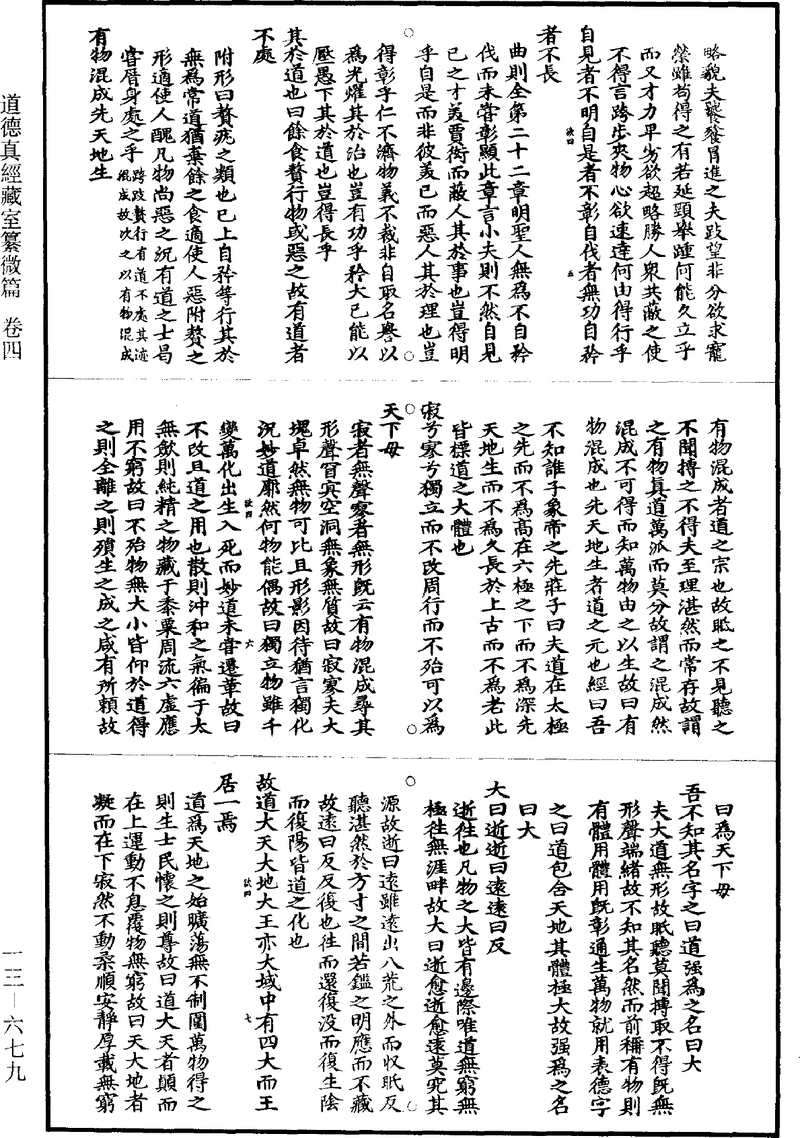 略貌夫饕餮冐進之夫跂望非分欲求寵
榮雖苟得之有若延頸舉踵何能久立乎
而又才力卑劣欲超略勝人衆共蔽之使
不得言跨步夾物心欲速達何由得行乎
自見者不明自是者不彰自伐者無功自矜
者不長
曲則全第二十二章明聖人無為不自矜
伐而未甞彰顯此章言小夫則不然自見
已之才美賈衒而蔽人其於事也豈得明
乎自是而非彼美已而惡人其於理也豈
得彰乎仁不濟物義不裁非自取名譽以
為光燿其於治也豈有功乎矜大已能以
壓愚下其於道也豈得長乎
其於道也曰餘食贅行物或惡之故有道者
不處
附形曰贅疣之類也已上自矜等行其於
無為常道猶棄餘之食適使人惡附贅之
形適使人醜凡物尚惡之況有道之士曷
甞厝身處之乎跨跂贅行有道不處其遠混成故次之以有物混成
有物混成先天地生
有物混成者道之宗也故眂之不見聽之
不聞搏之不得夫至理湛然而常存故謂
之有物真道萬派而莫分故謂之混成然
混成不可得而知萬物由之以生故曰有
物混成也先天地生者道之元也經曰吾
不知誰子象帝之先莊子曰夫道在太極
之先而不為高在六極之下而不為深先
天地生而不為久長於上古而不為老此
皆標道之大體也
寂兮寥兮獨立而不改周行而不殆可以為
天下母
寂者無聲寥者無形旣云有物混成尋其
形聲冐㝠空洞無象無質故曰寂寥夫大
塊卓然無物可比且形影因待猶言獨化
況妙道廓然何物能偶故曰獨立物雖千
變萬化出生入死而妙道未甞遷革故曰
不改且道之用也散則沖和之氣徧于太
無斂則純精之物藏于黍粟周流六虛應
用不窮故曰不殆物無大小皆仰於道得
之則全離之則殞生之成之咸有所賴故
曰為天下母
吾不知其名字之曰道强為之名曰大
夫大道無形故眂聽莫聞搏取不得旣無
形聲端緒故不知其名然而前稱有物則
有體用體用旣彰通生萬物就用表德字
之曰道包含天地其體極大故强為之名
曰大
大曰逝逝曰遠遠曰反
逝往也凡物之大皆有邊際唯道無窮無
極往無涯畔故大曰逝愈逝愈遠莫究其
源故逝曰遠雖遠出八荒之外而収眂反
聽湛然於方寸之間若鑑之明應而不藏
故遠曰反反復也往而還復没而復生陰
而復陽皆道之化也
故道大天大地大王亦大域中有四大而王
居一焉
道為天地之始曠蕩無不制圍萬物得之
則生士民懷之則尊故曰道大天者顛而
在上運動不息覆物無窮故曰天大地者
凝而在下寂然不動柔順安靜厚載無窮
道德真經藏室纂微篇　卷四
一三—六七九